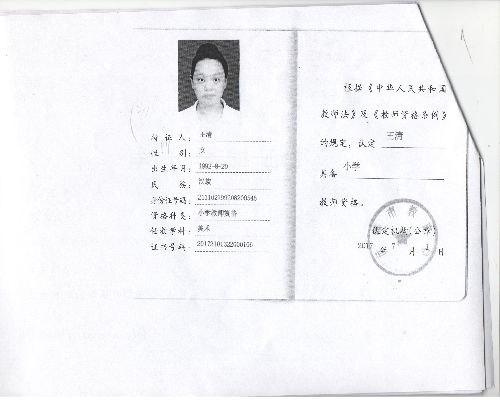 持 证 人：王清
性    别：女
出生年月：1992-8-20
民    族：汉族
身份证号码：
资格种类：小学教师资格
任教学科：美术
证书号码：
根据《中华人民共和国
教师法》及《教师资格条例》
的规定，认定 王清
具备 小学
教师资格。
认定机构(公章)
2017 年 7 月 1 日